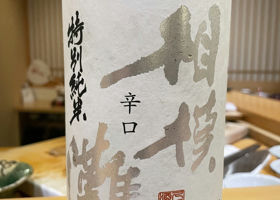 相模
灘
特別純米
辛口